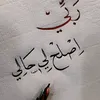 رَبِّي
اِصْلَحْ لِي حَالِي